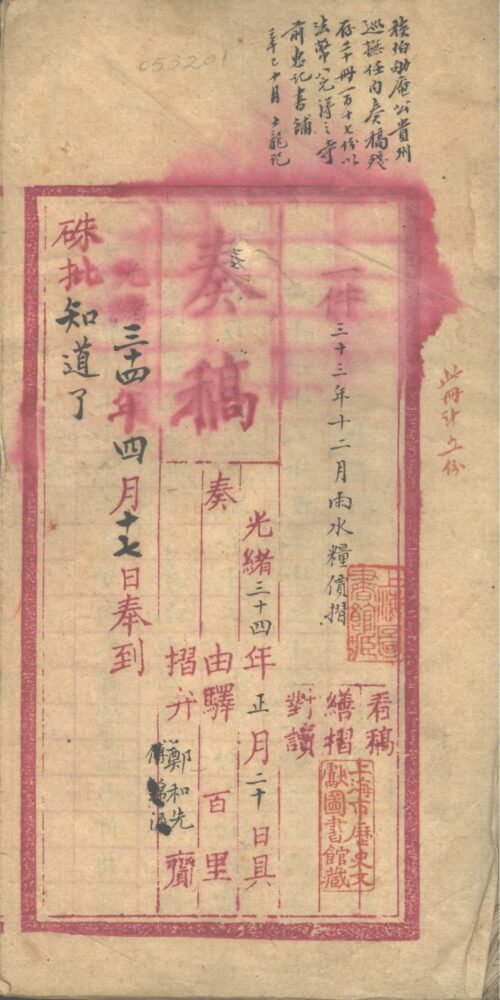 族伯劬庵公貴州
巡撫任內奏稿殘
存二十冊一百十七份以
法幣八元得之寺
前忠記書鋪
辛巳十月 士龍記
053201
此冊計 份
一件 三十三年十二月雨水糧價摺
上海圖
書館藏
看稿
繕摺
對讀
上海市歷史文
獻圖書館藏
奏稿
光緒三十四年正月二十日具
奏
由驛 百里
摺弁 鄭和先 齎
光緒三十四年四月十七日奉到
硃批知道了